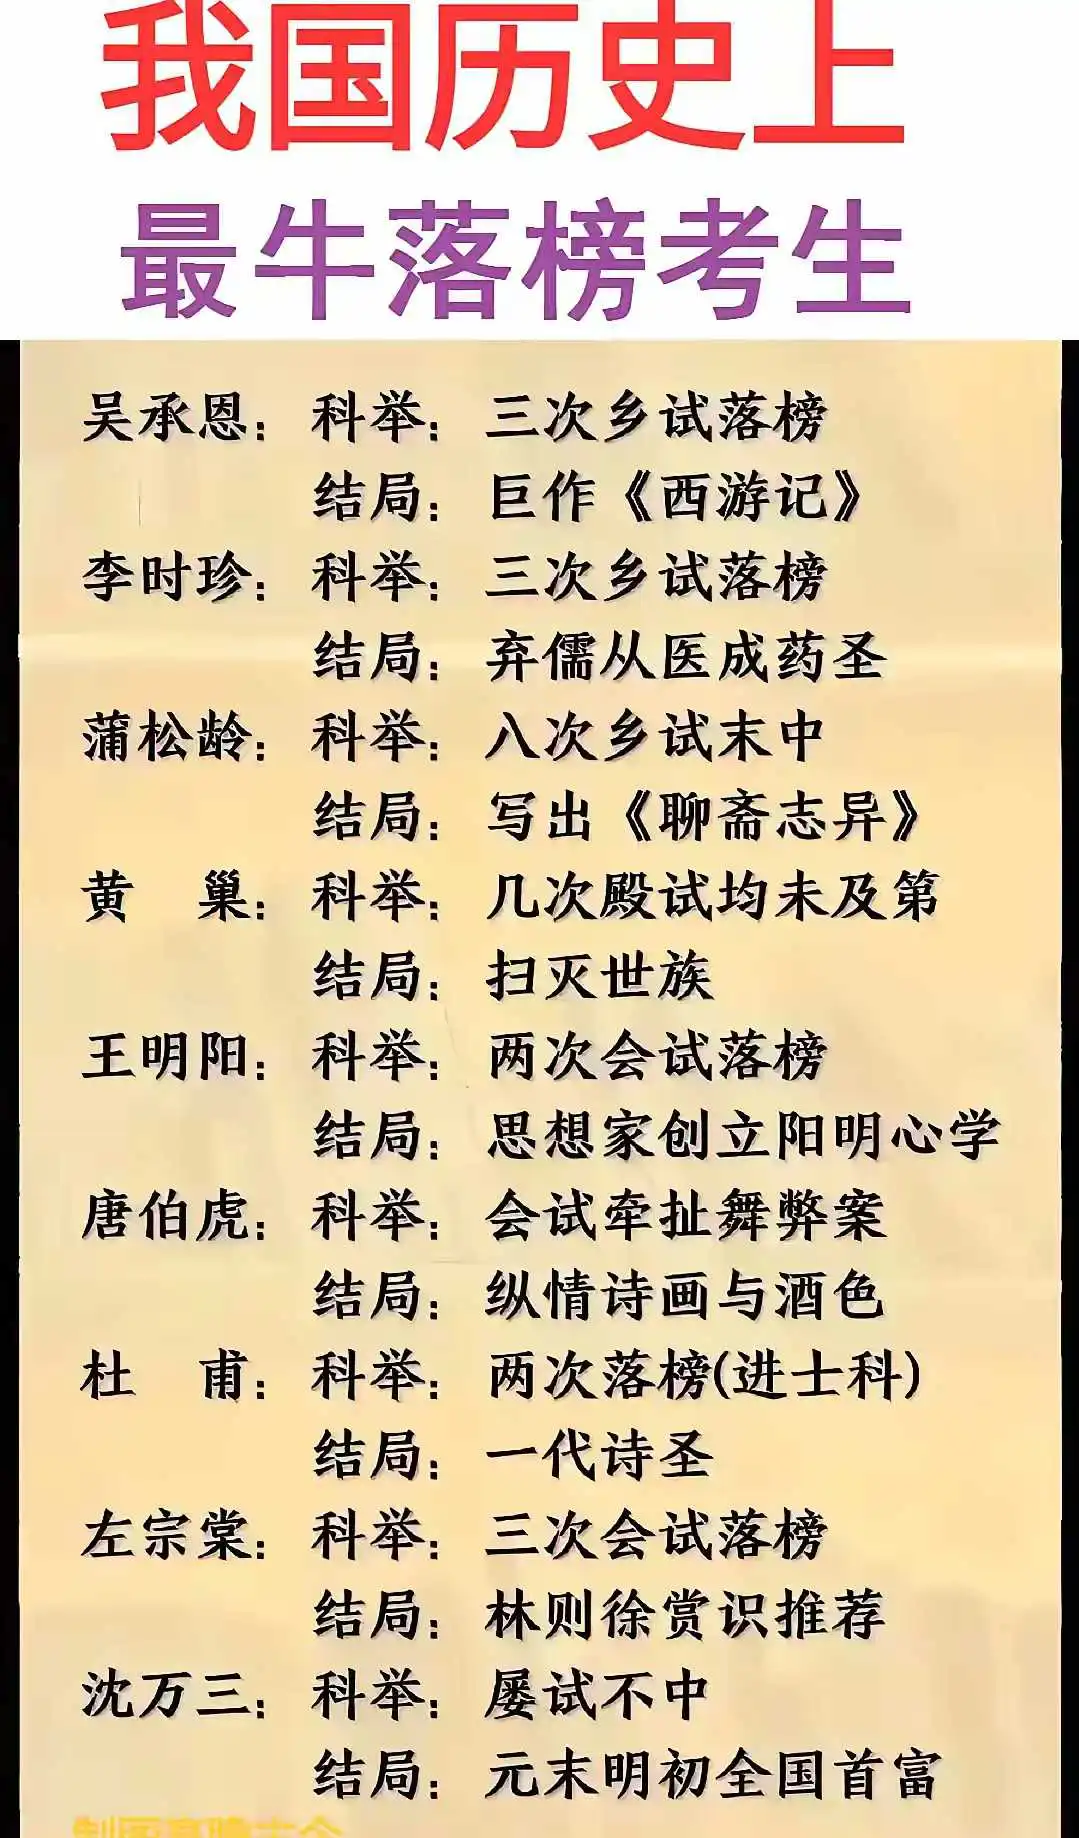 我国历史上
最牛落榜考生
吴承恩：科举：三次乡试落榜
结局：巨作《西游记》
李时珍：科举：三次乡试落榜
结局：弃儒从医成药圣
蒲松龄：科举：八次乡试末中
结局：写出《聊斋志异》
黄　巢：科举：几次殿试均未及第
结局：扫灭世族
王明阳：科举：两次会试落榜
结局：思想家创立阳明心学
唐伯虎：科举：会试牵扯舞弊案
结局：纵情诗画与酒色
杜　甫：科举：两次落榜(进士科)
结局：一代诗圣
左宗棠：科举：三次会试落榜
结局：林则徐赏识推荐
沈万三：科举：屡试不中
结局：元末明初全国首富